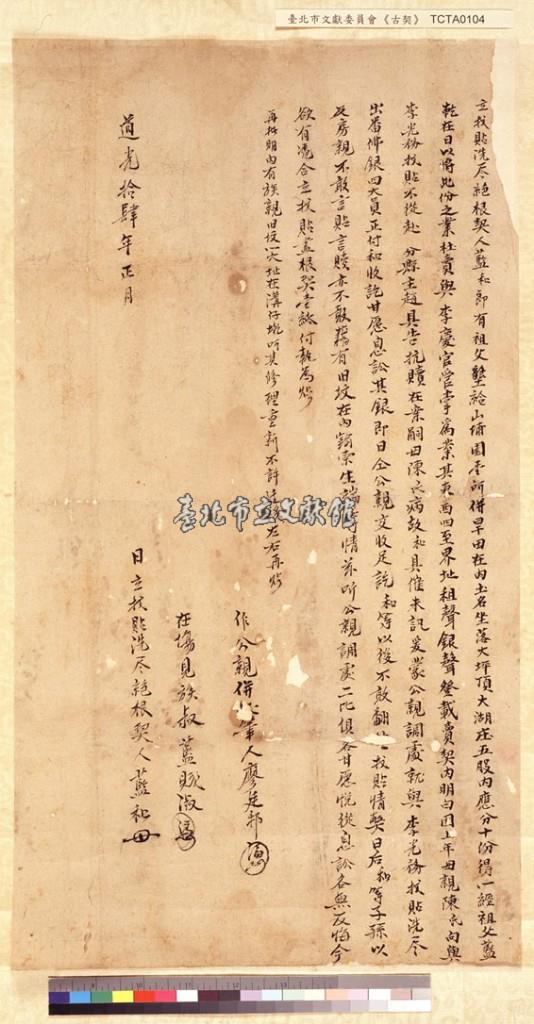 臺北市文獻委員會《古契》 TCTA0104
立找貼洗尽絕根契人藍和即有祖父墾給山埔園壹所併旱田在內土名坐落大坪頂大湖庄五股內應分十份得一經祖父藍
乾在日以將此份之業杜賣與李慶官管掌為業其東西四至界址租聲銀聲登載賣契內明白因上年母親陳氏向與
李光務找貼不從赴分縣主趙具告抗贖在案嗣因陳氏病故和具催未訊爰蒙公親調處就與李光務找貼洗尽
出番佛銀四大員正付和收訖甘愿息訟其銀即日仝公親交收足訖和等以後不敢翻 找貼情契日后和等子孫以
及房親不敢言貼言贖亦不敢藉有旧坟在內窺索生端等情并听公親調處二比俱各甘愿悅從息訟各無反悔今
欲有憑合立找貼盡根契壹紙付執為炤
再批明內有族親旧坟一穴址在溝仔墘听其修理重新不許 左右再炤
作公親併代筆人廖廷邦
在場見族叔藍賊淑
道光拾肆年正月 日立找貼洗尽絕根契人藍和
臺北市立文獻館